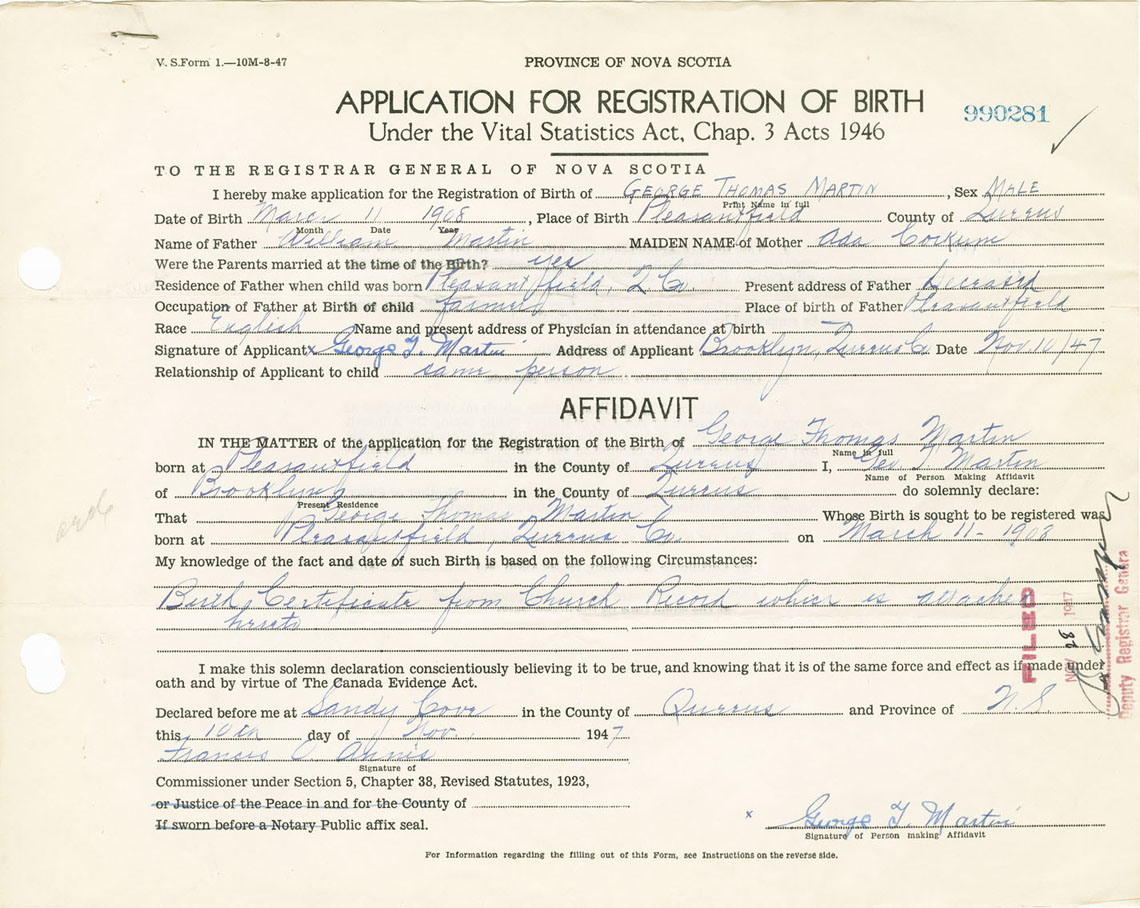 V. S.Form 1.—10M-8-47
PROVINCE OF NOVA SCOTIA
APPLICATION FOR REGISTRATION OF BIRTH
990281
Under the Vital Statistics Act, Chap. 3 Acts 1946
TO THE REGISTRAR GENERAL OF NOVA SCOTIA
I hereby make application for the Registration of Birth of GEORGE THOMAS MARTIN, Sex MALE
Print Name in full
Date of Birth March 11 1908, Place of Birth Pleasantfield County of Queens
Month Date Year
Name of Father William Martin MAIDEN NAME of Mother Ada Corkum
Were the Parents married at the time of the Birth? yes
Residence of Father when child was born Pleasantfield, Q Co. Present address of Father Deceased
Occupation of Father at Birth of child farmer Place of birth of Father Pleasantfield
Race English Name and present address of Physician in attendance at birth
Signature of Applicant x George T. Martin Address of Applicant Brooklyn, Queens Co Date Nov 10/47
Relationship of Applicant to child same person
AFFIDAVIT
IN THE MATTER of the application for the Registration of the Birth of George Thomas Martin
Name in full
born at Pleasantfield in the County of Queens I, Geo T. Martin
Name of Person Making Affidavit
of Brooklyn in the County of Queens do solemnly declare:
Present Residence
That George Thomas Martin Whose Birth is sought to be registered was
born at Pleasantfield, Queens Co. on March 11 - 1908
My knowledge of the fact and date of such Birth is based on the following Circumstances:
Birth Certificate from Church Record which is attached
hereto
I make this solemn declaration conscientiously believing it to be true, and knowing that it is of the same force and effect as if made under
oath and by virtue of The Canada Evidence Act.
Declared before me at Sandy Cove in the County of Queens and Province of N.S.
this 10th day of Nov. 1947
Francis O. Annis
Signature of
Commissioner under Section 5, Chapter 38, Revised Statutes, 1923,
or Justice of the Peace in and for the County of
If sworn before a Notary Public affix seal.
x George T. Martin
Signature of Person making Affidavit
For Information regarding the filling out of this Form, see Instructions on the reverse side.
FILED
NOV 1947
Deputy Registrar General